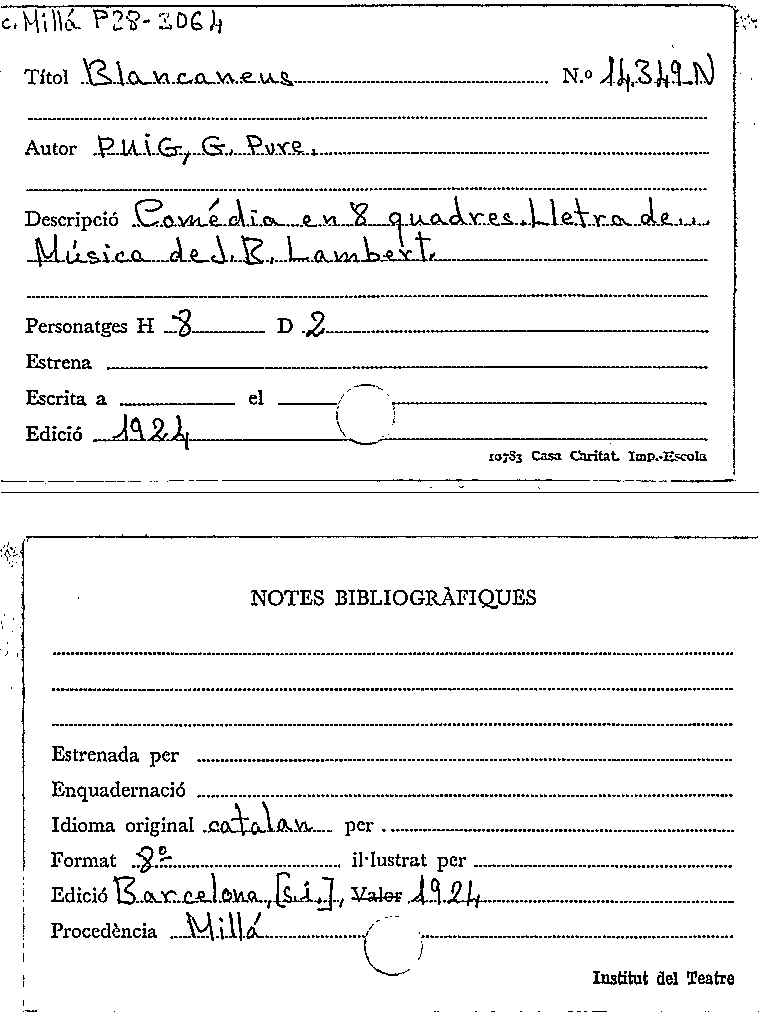 c. Millá P28-3064
Títol Blancaneus N.º 14.349.N
Autor PUiG, G. Pure.
Descripció Comédia en 8 quadres. Lletra de...
Música de J.R. Lambert.
Personatges H 8 D 2
Estrena
Escrita a el
Edició 1924
10783 Casa Caritat. Imp.-Escola
NOTES BIBLIOGRÀFIQUES
Estrenada per
Enquadernació
Idioma original catalan per
Format 8º il·lustrat per
Edició Barcelona, [s.i.], Valor 1924
Procedència Millá
Institut del Teatre